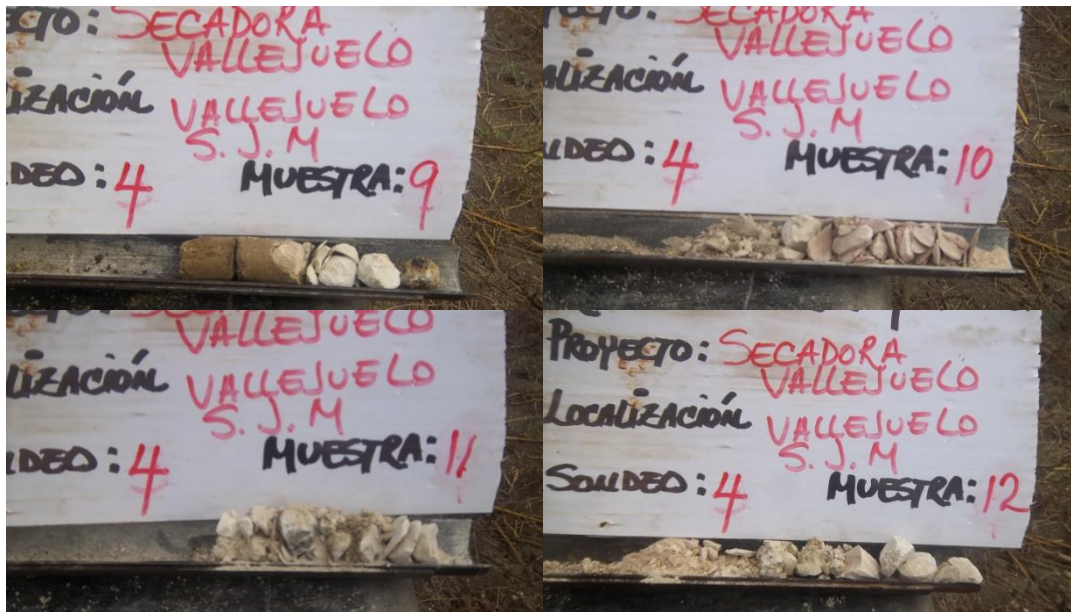 ECTO: SECADORA
VALLEJUELO
LIZACIÓN VALLEJUELO
S.J.M
DEO: 4 MUESTRA: 9
SECADORA
VALLEJUELO
ALIZACIÓN VALLEJUELO
S.J.M
DEO: 4 MUESTRA: 10
VALLEJUELO
LIZACIÓN VALLEJUELO
S.J.M
DEO: 4 MUESTRA: 11
PROYECTO: SECADORA
VALLEJUELO
LOCALIZACIÓN VALLEJUELO
S.J.M
SONDEO: 4 MUESTRA: 12